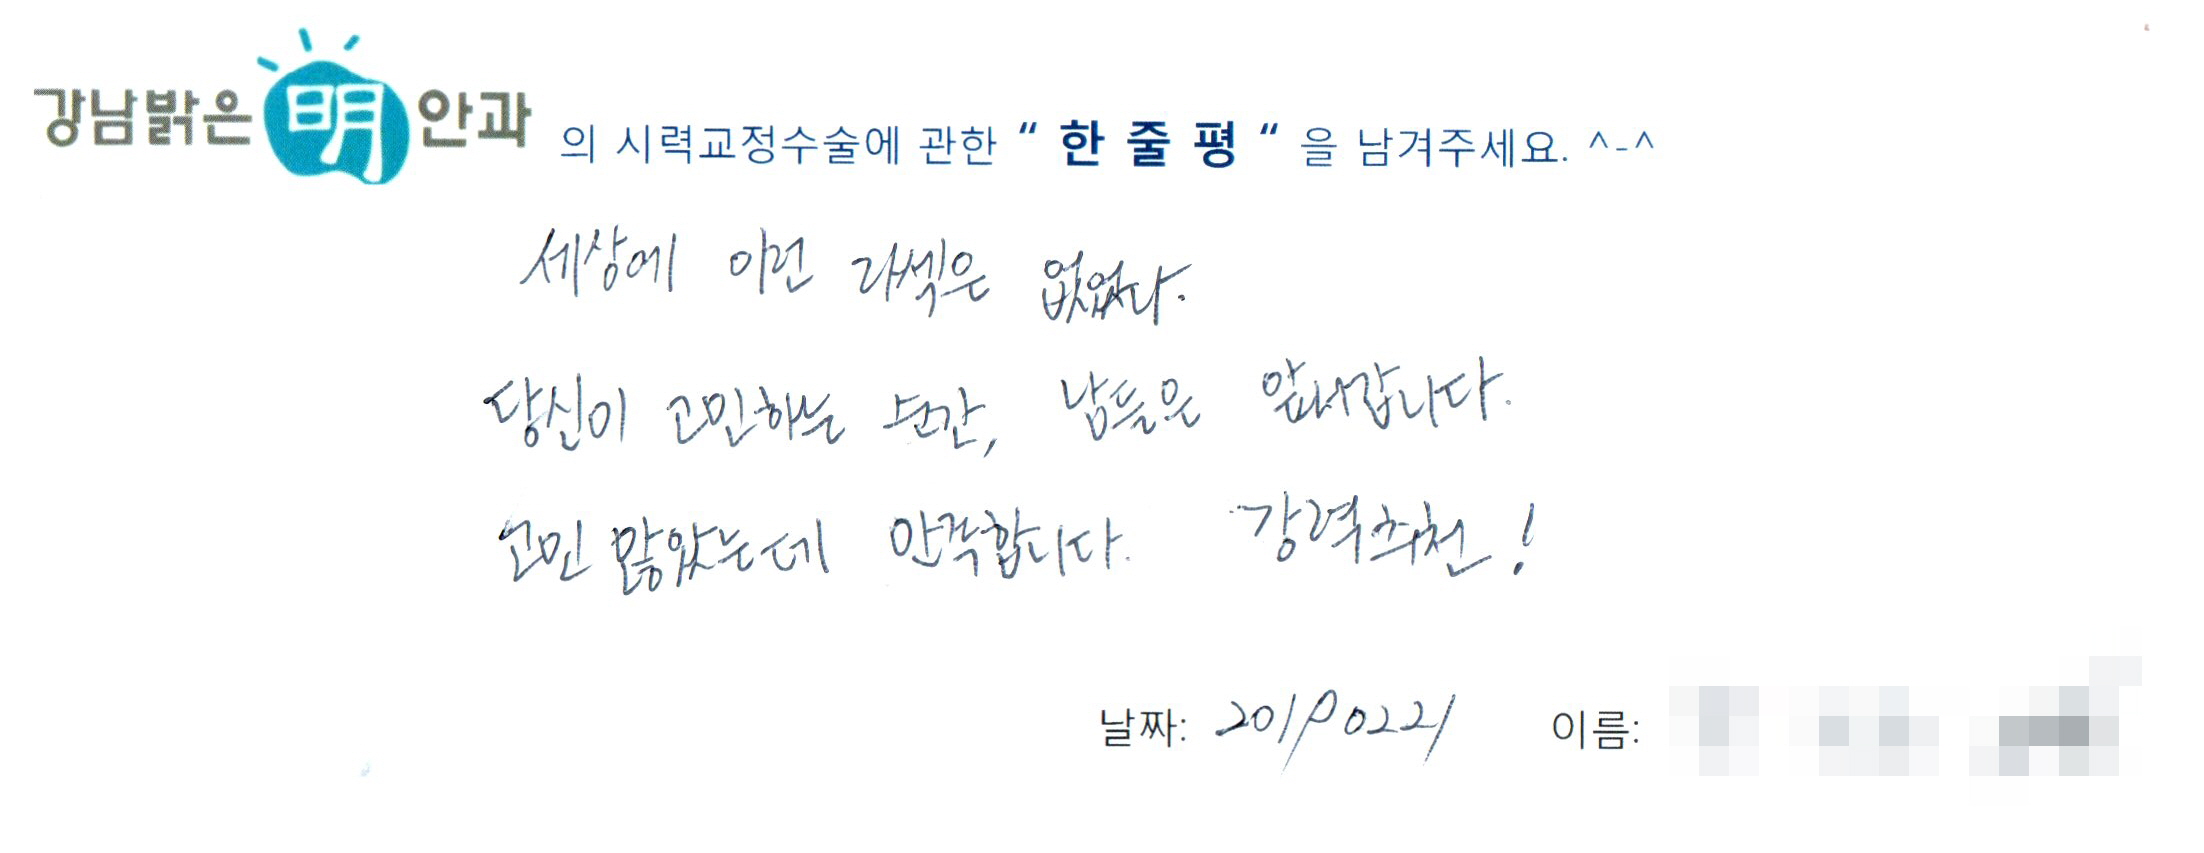 강남밝은明안과 의 시력교정수술에 관한 “ 한 줄 평 “ 을 남겨주세요. ^-^
세상에 이런 라섹은 없었다.
당신이 고민하는 순간, 남들은 앞서갑니다.
고민 많았는데 만족합니다. 강력추천!
날짜: 20190221 이름: